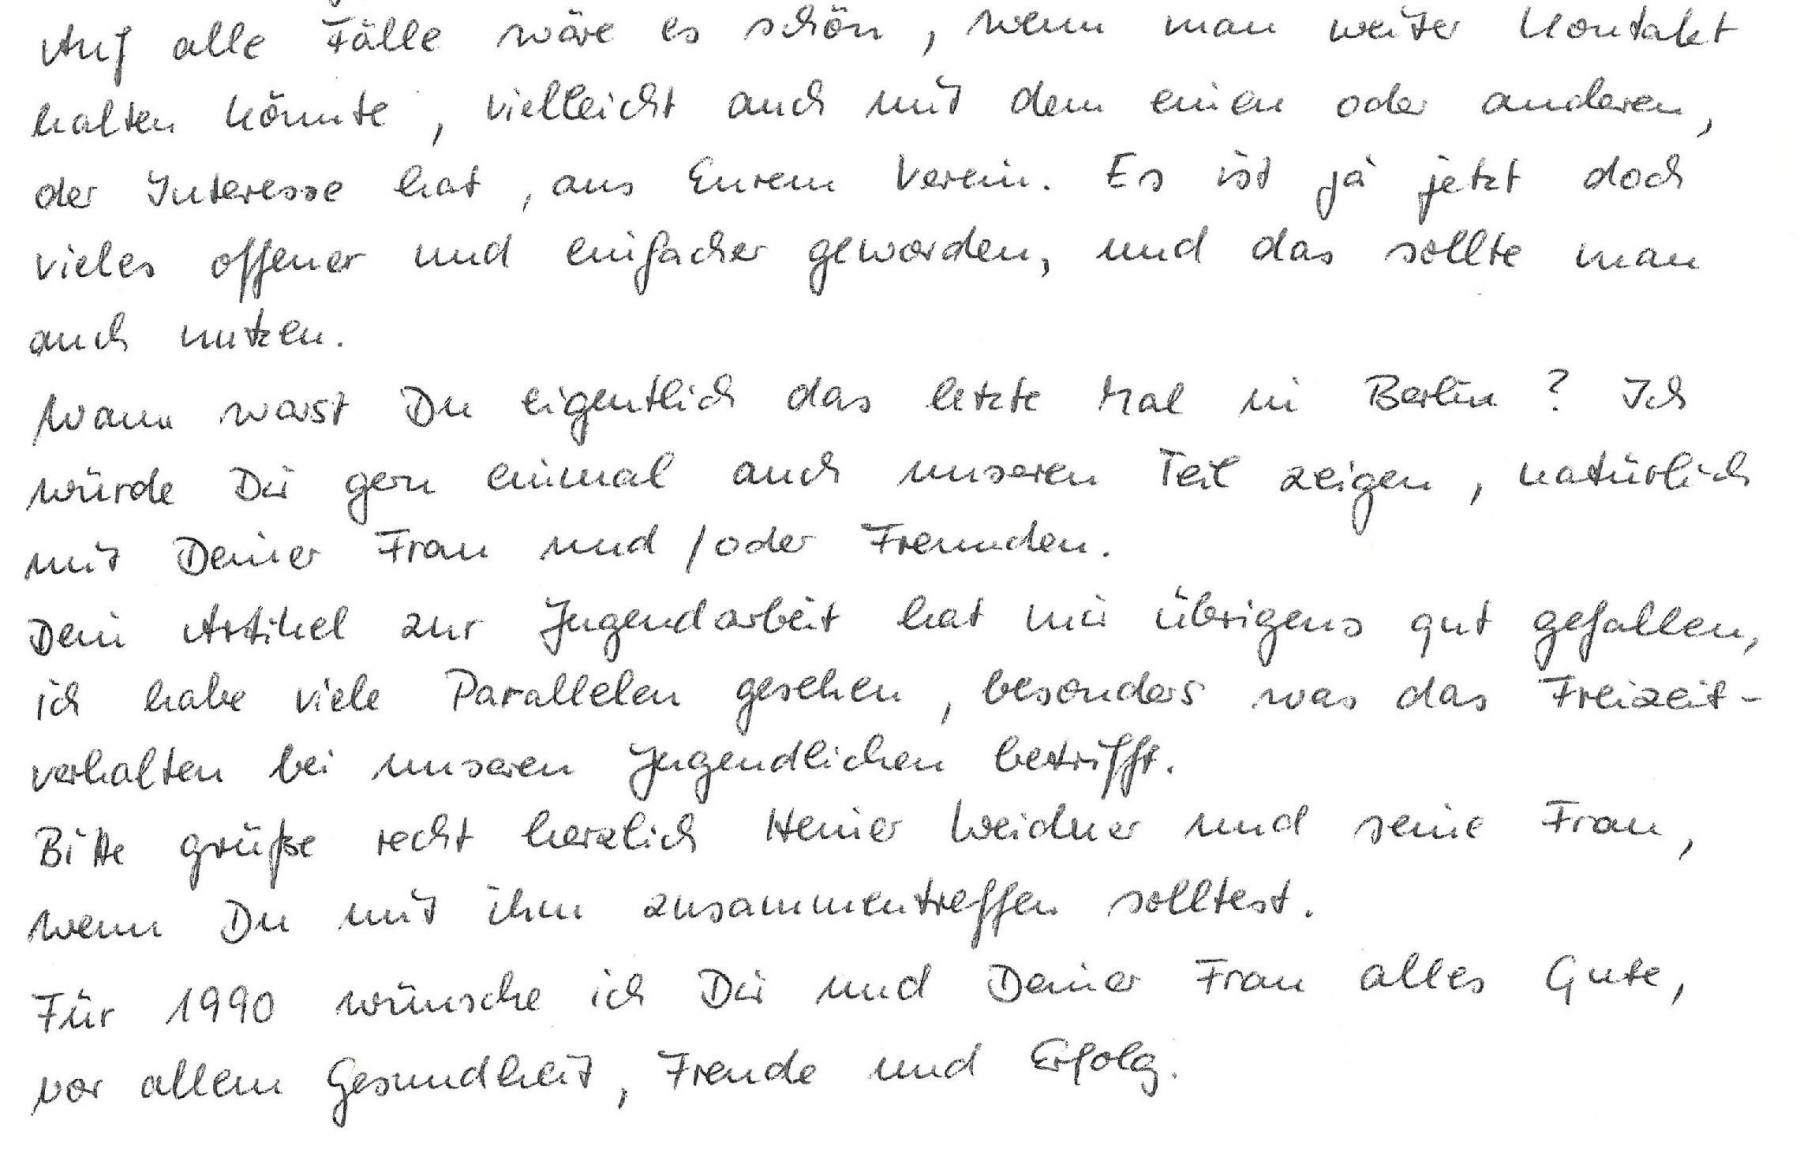 Auf alle Fälle wäre es schön, wenn man weiter Kontakt
halten könnte, vielleicht auch mit dem einen oder anderen,
der Interesse hat, aus Eurem Verein. Es ist ja jetzt doch
vieles offener und einfacher geworden, und das sollte man
auch nutzen.
Wann warst Du eigentlich das letzte Mal in Berlin? Ich
würde Dir gern einmal auch unseren Teil zeigen, natürlich
mit Deiner Frau und/oder Freunden.
Dein Artikel zur Jugendarbeit hat mir übrigens gut gefallen,
ich habe viele Parallelen gesehen, besonders was das Freizeit-
verhalten bei unseren Jugendlichen betrifft.
Bitte grüße recht herzlich Heiner Weidner und seine Frau,
wenn Du mit ihm zusammentreffen solltest.
Für 1990 wünsche ich Dir und Deiner Frau alles Gute,
vor allem Gesundheit, Freude und Erfolg.